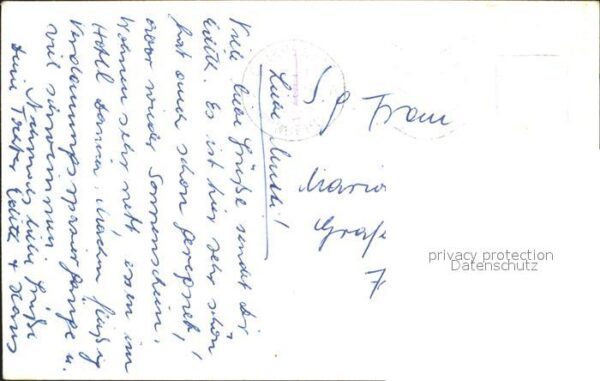 Liebe Mutti!
Viele liebe Grüße sendet dir
Edith. Es ist hier sehr schön
hat auch schon geregnet,
aber wieder Sonnenschein.
Wohnen sehr nett, essen im
Hotel machen fleißig
Verdauungsspaziergänge u.
viel schwimmen
Nochmals liebe Grüße
Deine Edith + Hans
S. g. Frau
Maria
Graf
privacy protection
Datenschutz